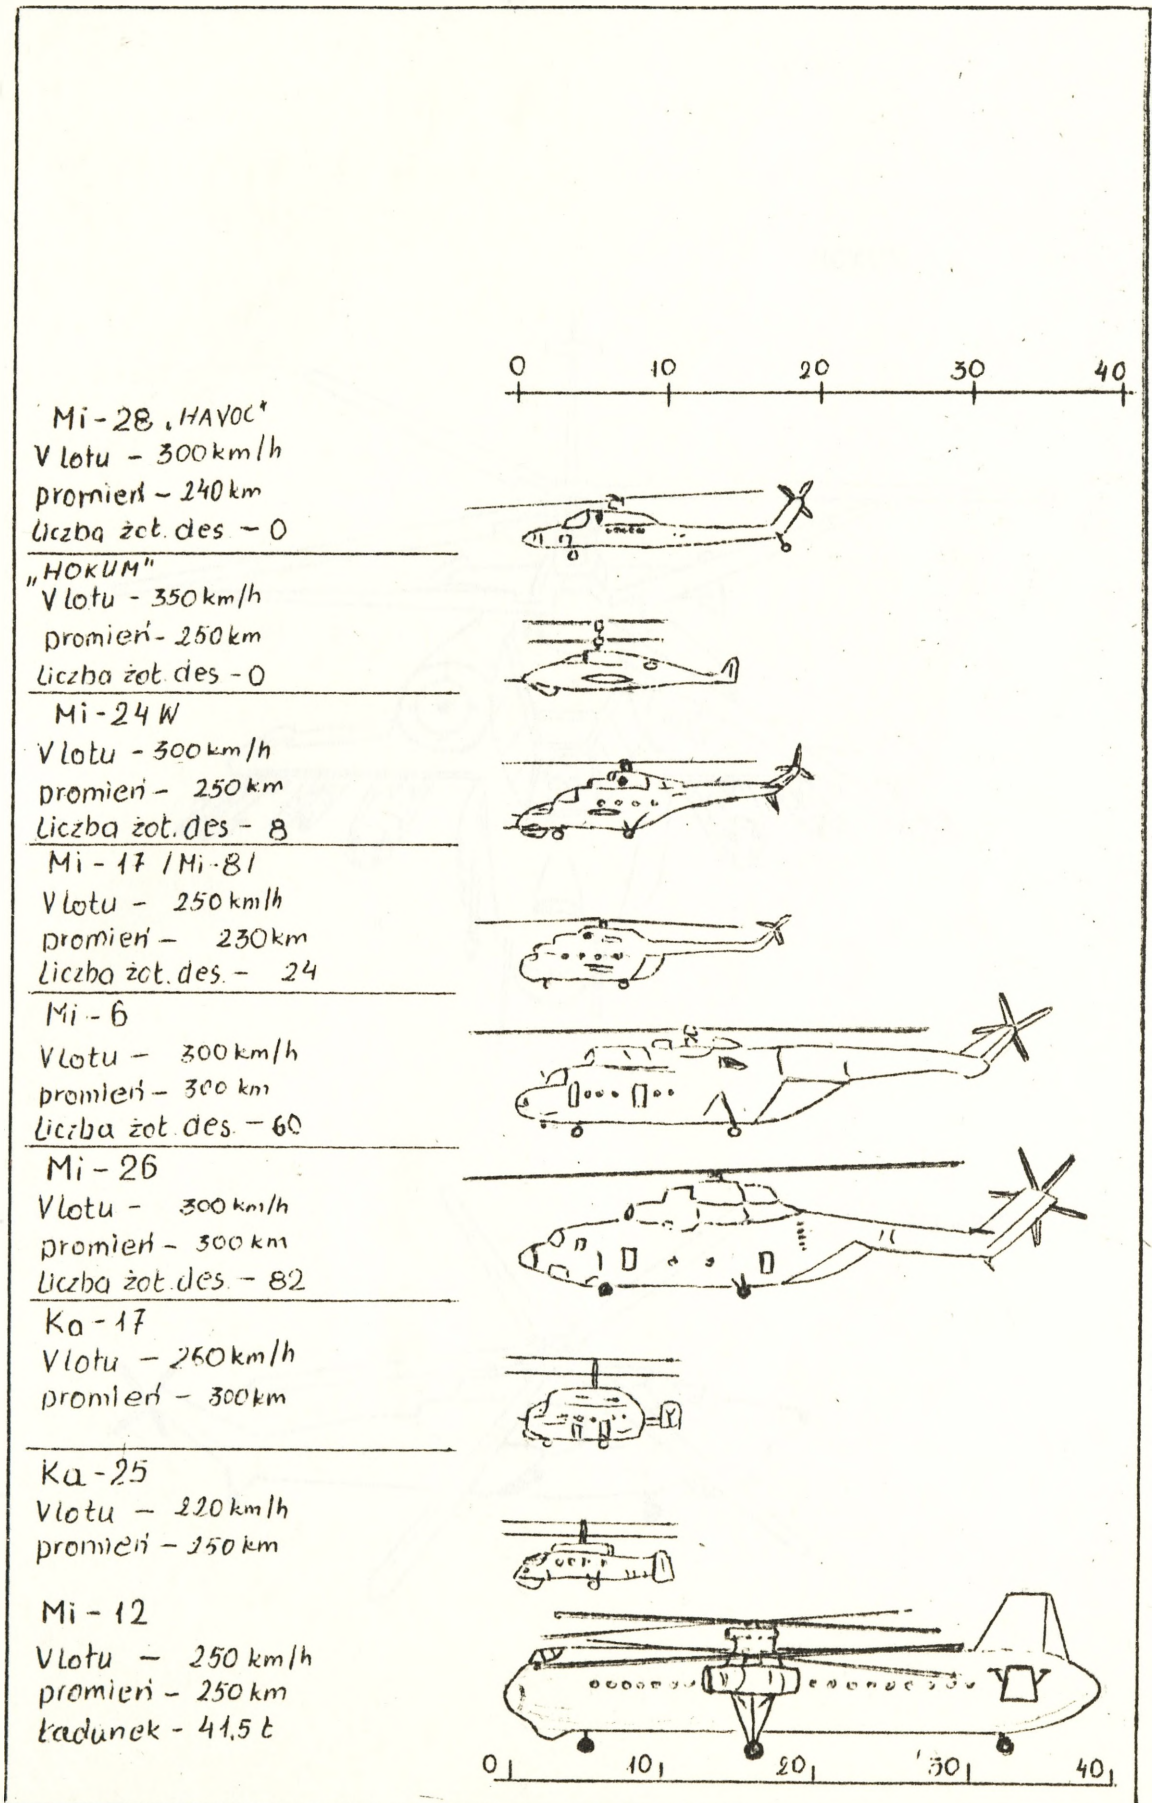 0 10 20 30 40
Mi-28 „HAVOC"
V lotu - 300 km/h
promień - 240 km
liczba żoł. des. - 0
„HOKUM"
V lotu - 350 km/h
promień - 250 km
liczba żoł. des. - 0
Mi-24 W
V lotu - 300 km/h
promień - 250 km
liczba żoł. des. - 8
Mi-17 /Mi-8/
V lotu - 250 km/h
promień - 230 km
liczba żoł. des. - 24
Mi-6
V lotu - 300 km/h
promień - 300 km
liczba żoł. des. - 60
Mi-26
V lotu - 300 km/h
promień - 300 km
liczba żoł. des. - 82
Ka-17
V lotu - 260 km/h
promień - 300 km
Ka-25
V lotu - 220 km/h
promień - 250 km
Mi-12
V lotu - 250 km/h
promień - 250 km
Ładunek - 41,5 t
0 10 20 30 40